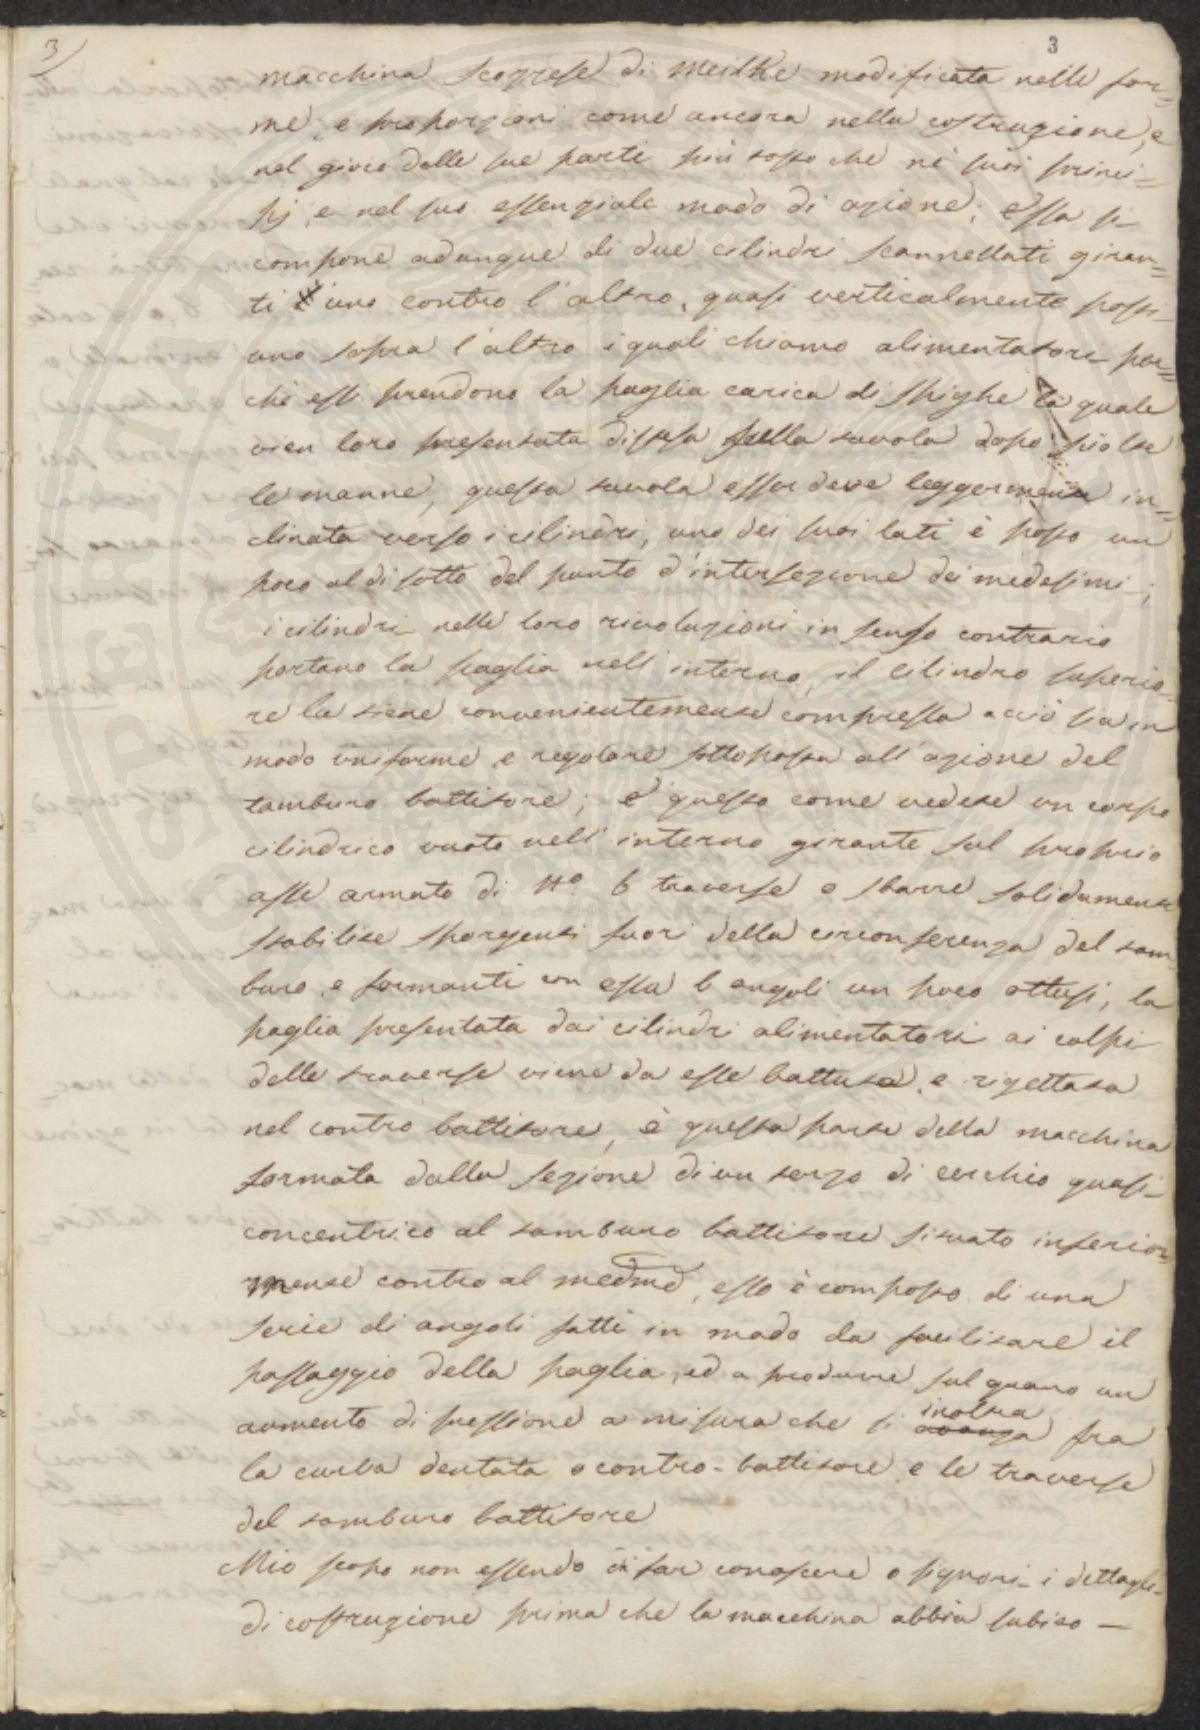 3
3
macchina Scozzese di Meikle modificata nelle for=
me, e proporzioni come ancora nella costruzione, e
nel gioco delle sue parti più tosto che ne' suoi princi=
pj, e nel suo essenziale modo di azione; essa si
compone adunque di due cilindri scannellati giran=
ti l'uno contro l'altro, quasi verticalmente posti
uno sopra l'altro i quali chiamo alimentatori per=
chè essi prendono la paglia carica di spighe la quale
vien loro presentata distesa sulla tavola dopo sciolte
le manne, questa tavola esser deve leggermente in=
clinata verso i cilindri, uno dei suoi lati è posto un
poco al di sotto del punto d'intersezione dei medesimi;
i cilindri nelle loro rivoluzioni in senso contrario
portano la paglia nell'interno, il cilindro superio
re la tiene convenientemente compressa acciò sia in
modo uniforme, e regolare sottoposta all'azione del
tamburo battitore; è questo come vedete un corpo
cilindrico vuoto nell'interno girante sul proprio
asse armato di N.º 6 traverse o sbarre solidamente
stabilite sporgenti fuori della circonferenza del tam=
buro, e formanti con essa 6 angoli un poco ottusi, la
paglia presentata dai cilindri alimentatori ai colpi
delle traverse viene da esse battuta, e rigettata
nel contro battitore, è questa parte della macchina
formata dalla sezione di un terzo di cerchio quasi
concentrico al tamburo battitore situato inferior=
mente contro al medmo, esso è composto di una
serie di angoli fatti in modo da facilitare il
passaggio della paglia, ed a produrre sul grano un
aumento di pressione a misura che si avanza inoltra fra
la curba dentata o contro-battitore, e le traverse
del tamburo battitore
Mio scopo non essendo di far conoscere o signori i dettagli
di costruzione prima che la macchina abbia subito